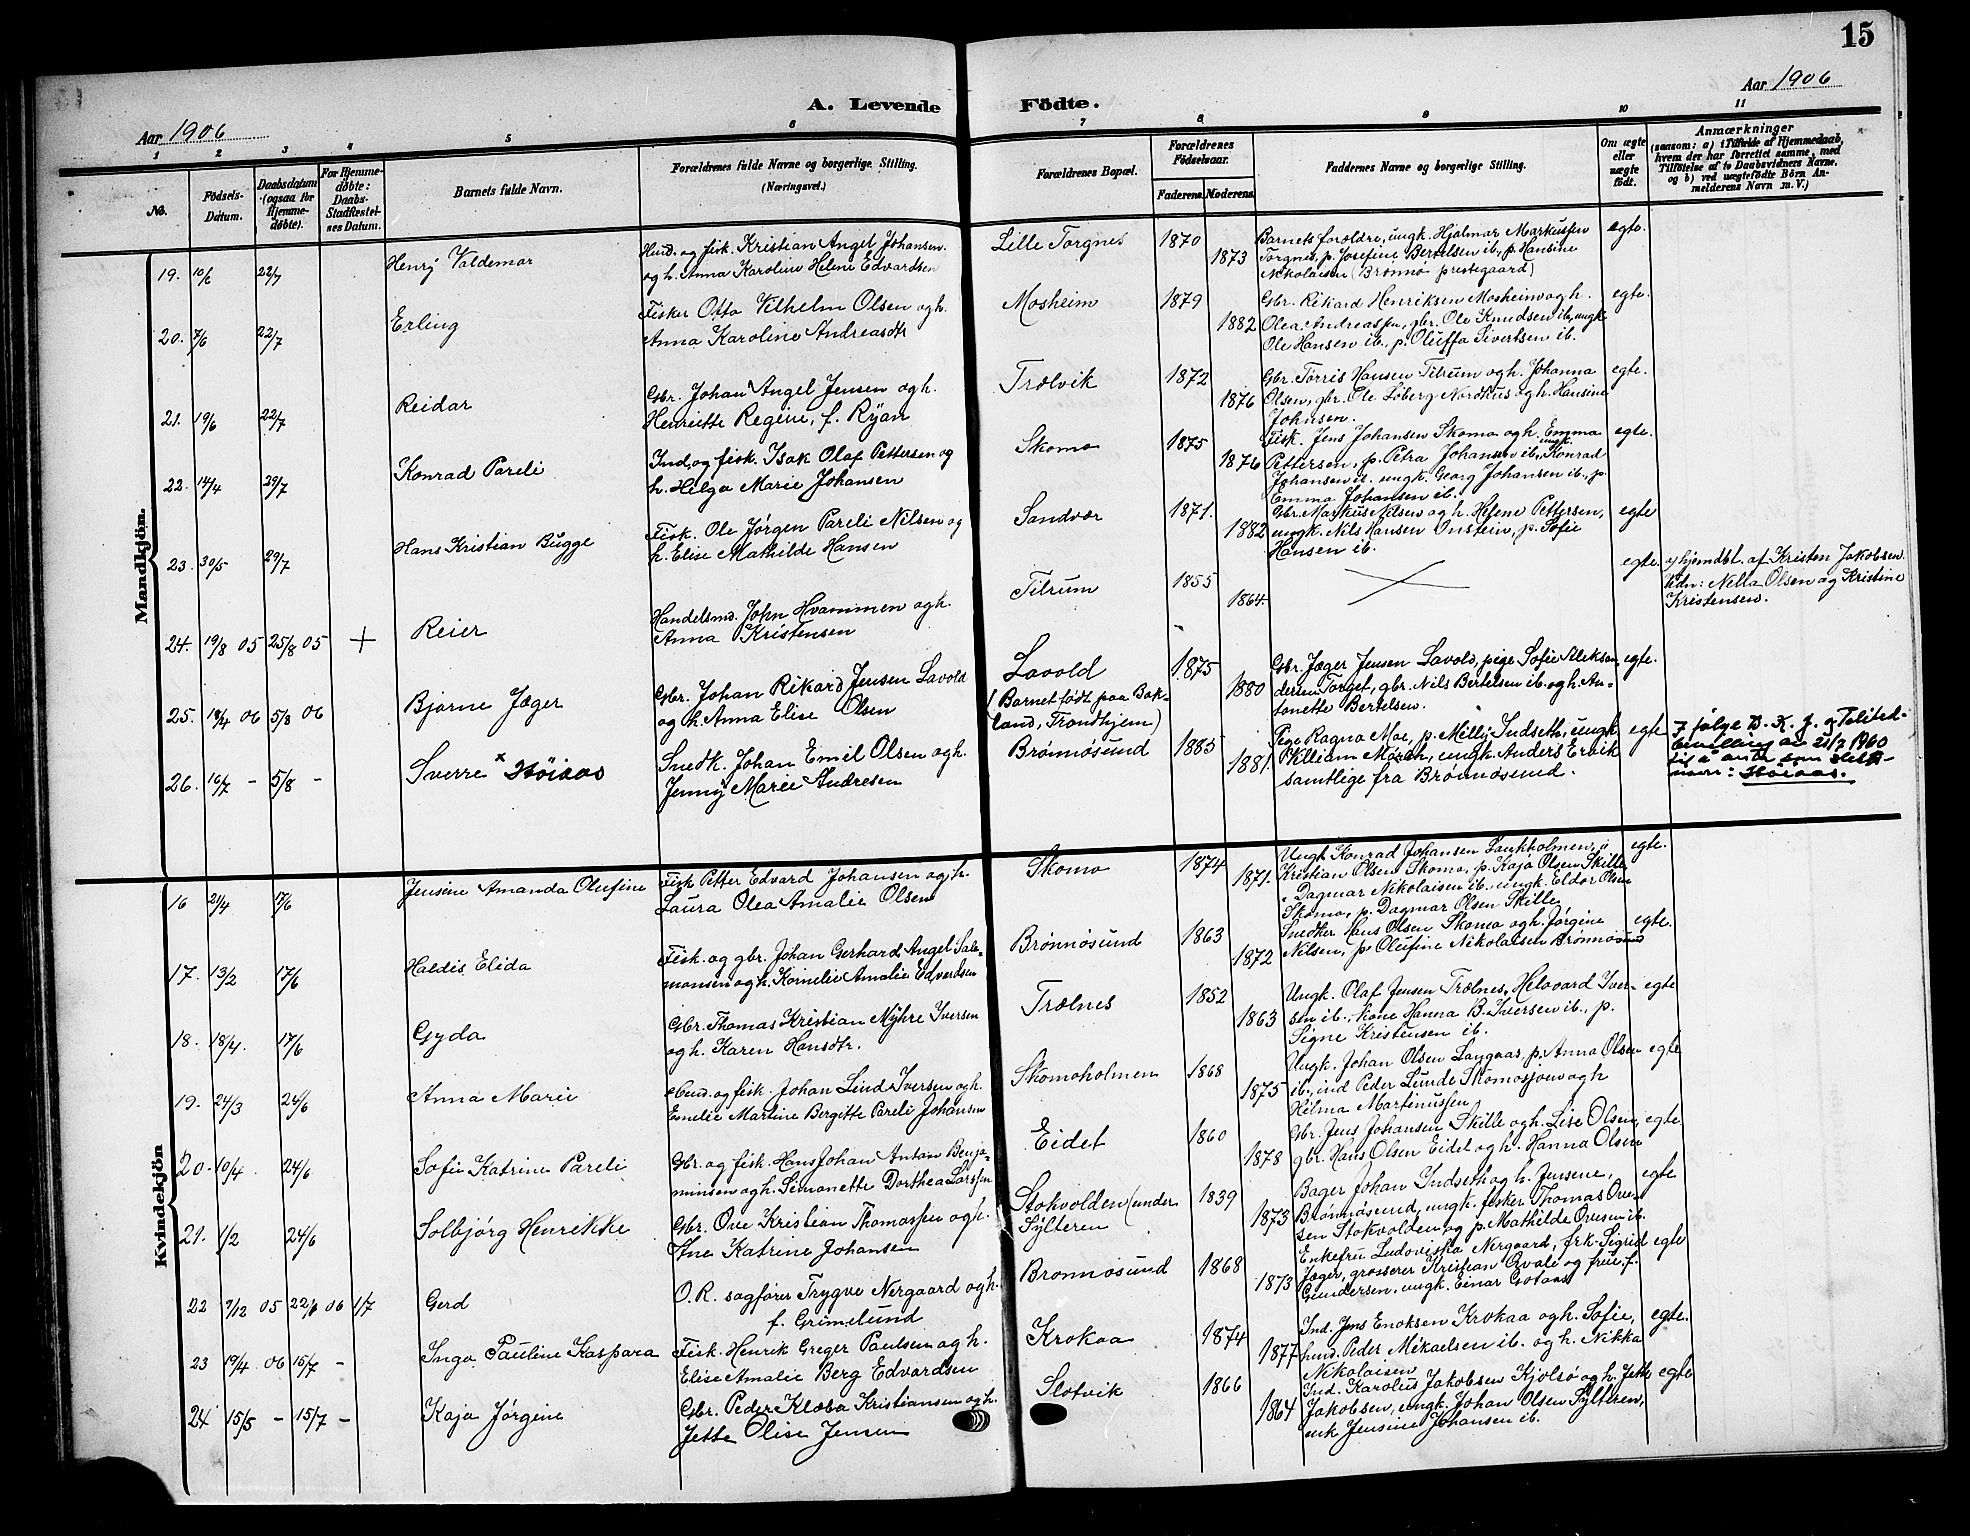 15
Aar 1906
A. Levende Födte.
Aar 1906
1 2 3 4 5 6 7 8 9 10 11
No.
Födsels-Datum.
Daabsdatum (ogsaa for Hjemmedöbte).
For Hjemmedöbte: Daabs-Stadfæstelses Datum.
Barnets fulde Navn.
Forældrenes fulde Navne og borgerlige Stilling.
(Næringsvei.)
Forældrenes Bopæl.
Forældrenes Födselsaar.
Faderens. Moderens.
Faddernes Navne og borgerlige Stilling.
Om ægte eller uægte födt.
Anmærkninger
(saasom: a) i Tilfælde af Hjemmedaab, hvem der har forrettet samme, med Tilföielse af to Daabsvidners Navne, og b) ved uægtefödte Börn Anmelderens Navn m. V.)
Mandkjön.
19. 10/6 22/7 Henry Valdemar
Husm. og fisk. Kristian Angel Johansen
og h. Anna Karoline Helene Edvardsen
Lille Torgnes 1870 1873
Barnets forældre, ungk. Hjalmar Markussen
Torgnes, p. Josefine Bertelsen ib., p. Hansine
Nikolaisen (Brønnø prestegaard)
egte.
20. 7/6 22/7 Erling
Fisker Otto Vilhelm Olsen og h.
Anna Karoline Andreasdtr
Mosheim 1879 1882
Gbr. Rikard Henriksen Mosheim og h.
Olea Andreassen, gbr. Ole Knudsen ib., ungk
Ole Hansen ib., p. Oluffa Sivertsen ib.
egte.
21. 19/6 22/7 Reidar
Gbr. Johan Angel Jensen og h.
Henriette Regine, f. Ryan
Trælvik 1872 1876
Gbr. Torris Hansen Tilrum og h. Johanna
Olsen, gbr. Ole Løberg Nordhus og h. Hansine
Johnsen.
egte.
22. 14/4 29/7 Konrad Pareli
Ind. og fisk. Isak Olaf Pettersen og
h. Helga Marie Johansen
Skomo 1875 1876
Fisk. Jens Johansen Skomo og h. Emma
Pettersen, p. Petra Johansen ib., ungk. Konrad
Johansen ib. ungk. Georg Johansen ib., p
Emma Johansen ib.
egte.
23. 30/5 29/7 Hans Kristian Bugge
Fisk. Ole Jørgen Pareli Nilsen og
h. Elise Mathilde Hansen
Sandvær 1871. 1882
Gbr. Markus Nilsen og h. Helene Pettersen,
ungk. Nils Hansen Onstein, p. Sofie
Hansen ib.
egte
24. 19/8 05 25/8 05 + Reier
Handelsmd. John Hvammen og h.
Anna Kristensen
Tilrum 1855 1864.
egte.
a) hjemdbt. af Kristen Jakobsen.
Vidn: Nella Olsen og Kristine
Kristensen.
25. 19/4 06 5/8 06 Bjarne Jæger
Gbr. Johan Rikard Jensen Lavold
og h. Anna Elise Olsen
Lavold
(Barnet født paa Bak-
land, Trondhjem)
1875 1880
Gbr. Jæger Jensen Lavold, pige Sofie Aleksan
dersen Torget, gbr. Nils Bertelsen ib. og h. An-
tonette Bertelsen.
egte.
26. 16/7 - 5/8 - Sverre x Høiaas
Snedk. Johan Emil Olsen og h.
Jenny Marie Andresen
Brønnøsund 1885 1881.
Pige Ragna Moe, p. Milly Indseth, ungk
William Moen, ungk. Anders Ervik
samtlige fra Brønnøsund.
egte
I følge D. K. J. og Politid.
bevilling av 21/7 1960
til å anta som slekts-
navn: Høiaas.
Kvindekjön
16 21/4 17/6 Jensine Amanda Olufine
Fisk. Petter Edvard Johansen og h.
Laura Olea Amalie Olsen
Skomo 1874 1871.
Ungk. Konrad Johansen Laukholmen, i
Kristian Olsen Skomo, p. Kaja Olsen Skille
" Dagmar Nikolaisen ib. ungk. Eldor Olsen
Skomo, p. Dagmar Olsen Skille
egte.
17. 13/2 17/6 Haldis Elida
Fisk. og gbr. Johan Gerhard Angel Salo-
monsen og h. Kornelie Amalie Edvardsen
Brønnøsund 1863 1872
Snedker Hans Olsen Skomo og h. Jørgine
Nilsen, p. Olufine Nikolaisen Brønnøsund
egte.
18. 18/4. 17/6 Gyda
Gbr. Thomas Kristian Myhre Iversen
og h. Karen Hansdtr.
Trælnes 1852 1863
Ungk. Olaf Jensen Trælnes, Helovard Iver-
sen ib., kone Hanna B. Iversen ib., p.
Signe Kristensen ib.
egte
19. 24/3 24/6 Anna Marie
Husm. og fisk. Johan Lind Iversen og h.
Emelie Martine Bergitte Pareli Johansen
Skomoholmen 1868 1875
Ungk. Johan Olsen Langaas, p. Anna Olsen
ib., ind Peder Lunde Skomosjoen og h
Hilma Martinussen
egte
20. 10/4 24/6 Sofie Katrine Pareli
Gbr. og fisk. Hans Johan Antan Benja-
minsen og h. Simonette Dorthea Larssen
Eidet 1860 1878
Gbr. Jens Johansen Skille og h. Lise Olsen,
gbr. Hans Olsen Eidet og h. Hanna Olsen
egte
21. 1/2 24/6 Solbjørg Henrikke
Gbr. Ove Kristian Thomassen og h.
Ane Katrine Johansen
Stokvolden (under
Sylteren
1839 1873
Bager Johan Indseth og h. Jensene,
Brønnøsund, ungk. fisker Thomas Ove-
sen Stokvolden og p. Mathilde Ovesen ib.
egte
22 9/12 05 22/6 06 1/7 Gerd
O.R. sagfører Trygve Nergaard og h.
f. Grimelund
Brønnøsund 1868 1873
Enkefru Ludoviska Nergaard, frk. Sigrid
Jæger, grosserer Kristian Qvale og frue, f.
Gundersen, ungk. Einar Gotaas
egte
23 19/4 06 15/7 - Inga Pauline Kaspara
Fisk. Henrik Greger Paulsen og h.
Elise Amalie Berg Edvardsen
Krokaa 1874 1877
Ind. Jens Enoksen Krokaa og h. Sofie,
husm. Peder Mikaelsen ib. og h. Nikka
Nikolaisen
egte.
24 15/5 - 15/7 - Kaja Jørgine
Gbr. Peder Klæbo Kristiansen og h.
Jette Olise Jensen
Slotvik 1866 1864
Ind. Karolus Jakobsen Kjolsø og h. Jette
Jakobsen, ungk. Johan Olsen Sylteren,
enk Jensine Johansen ib.
egte